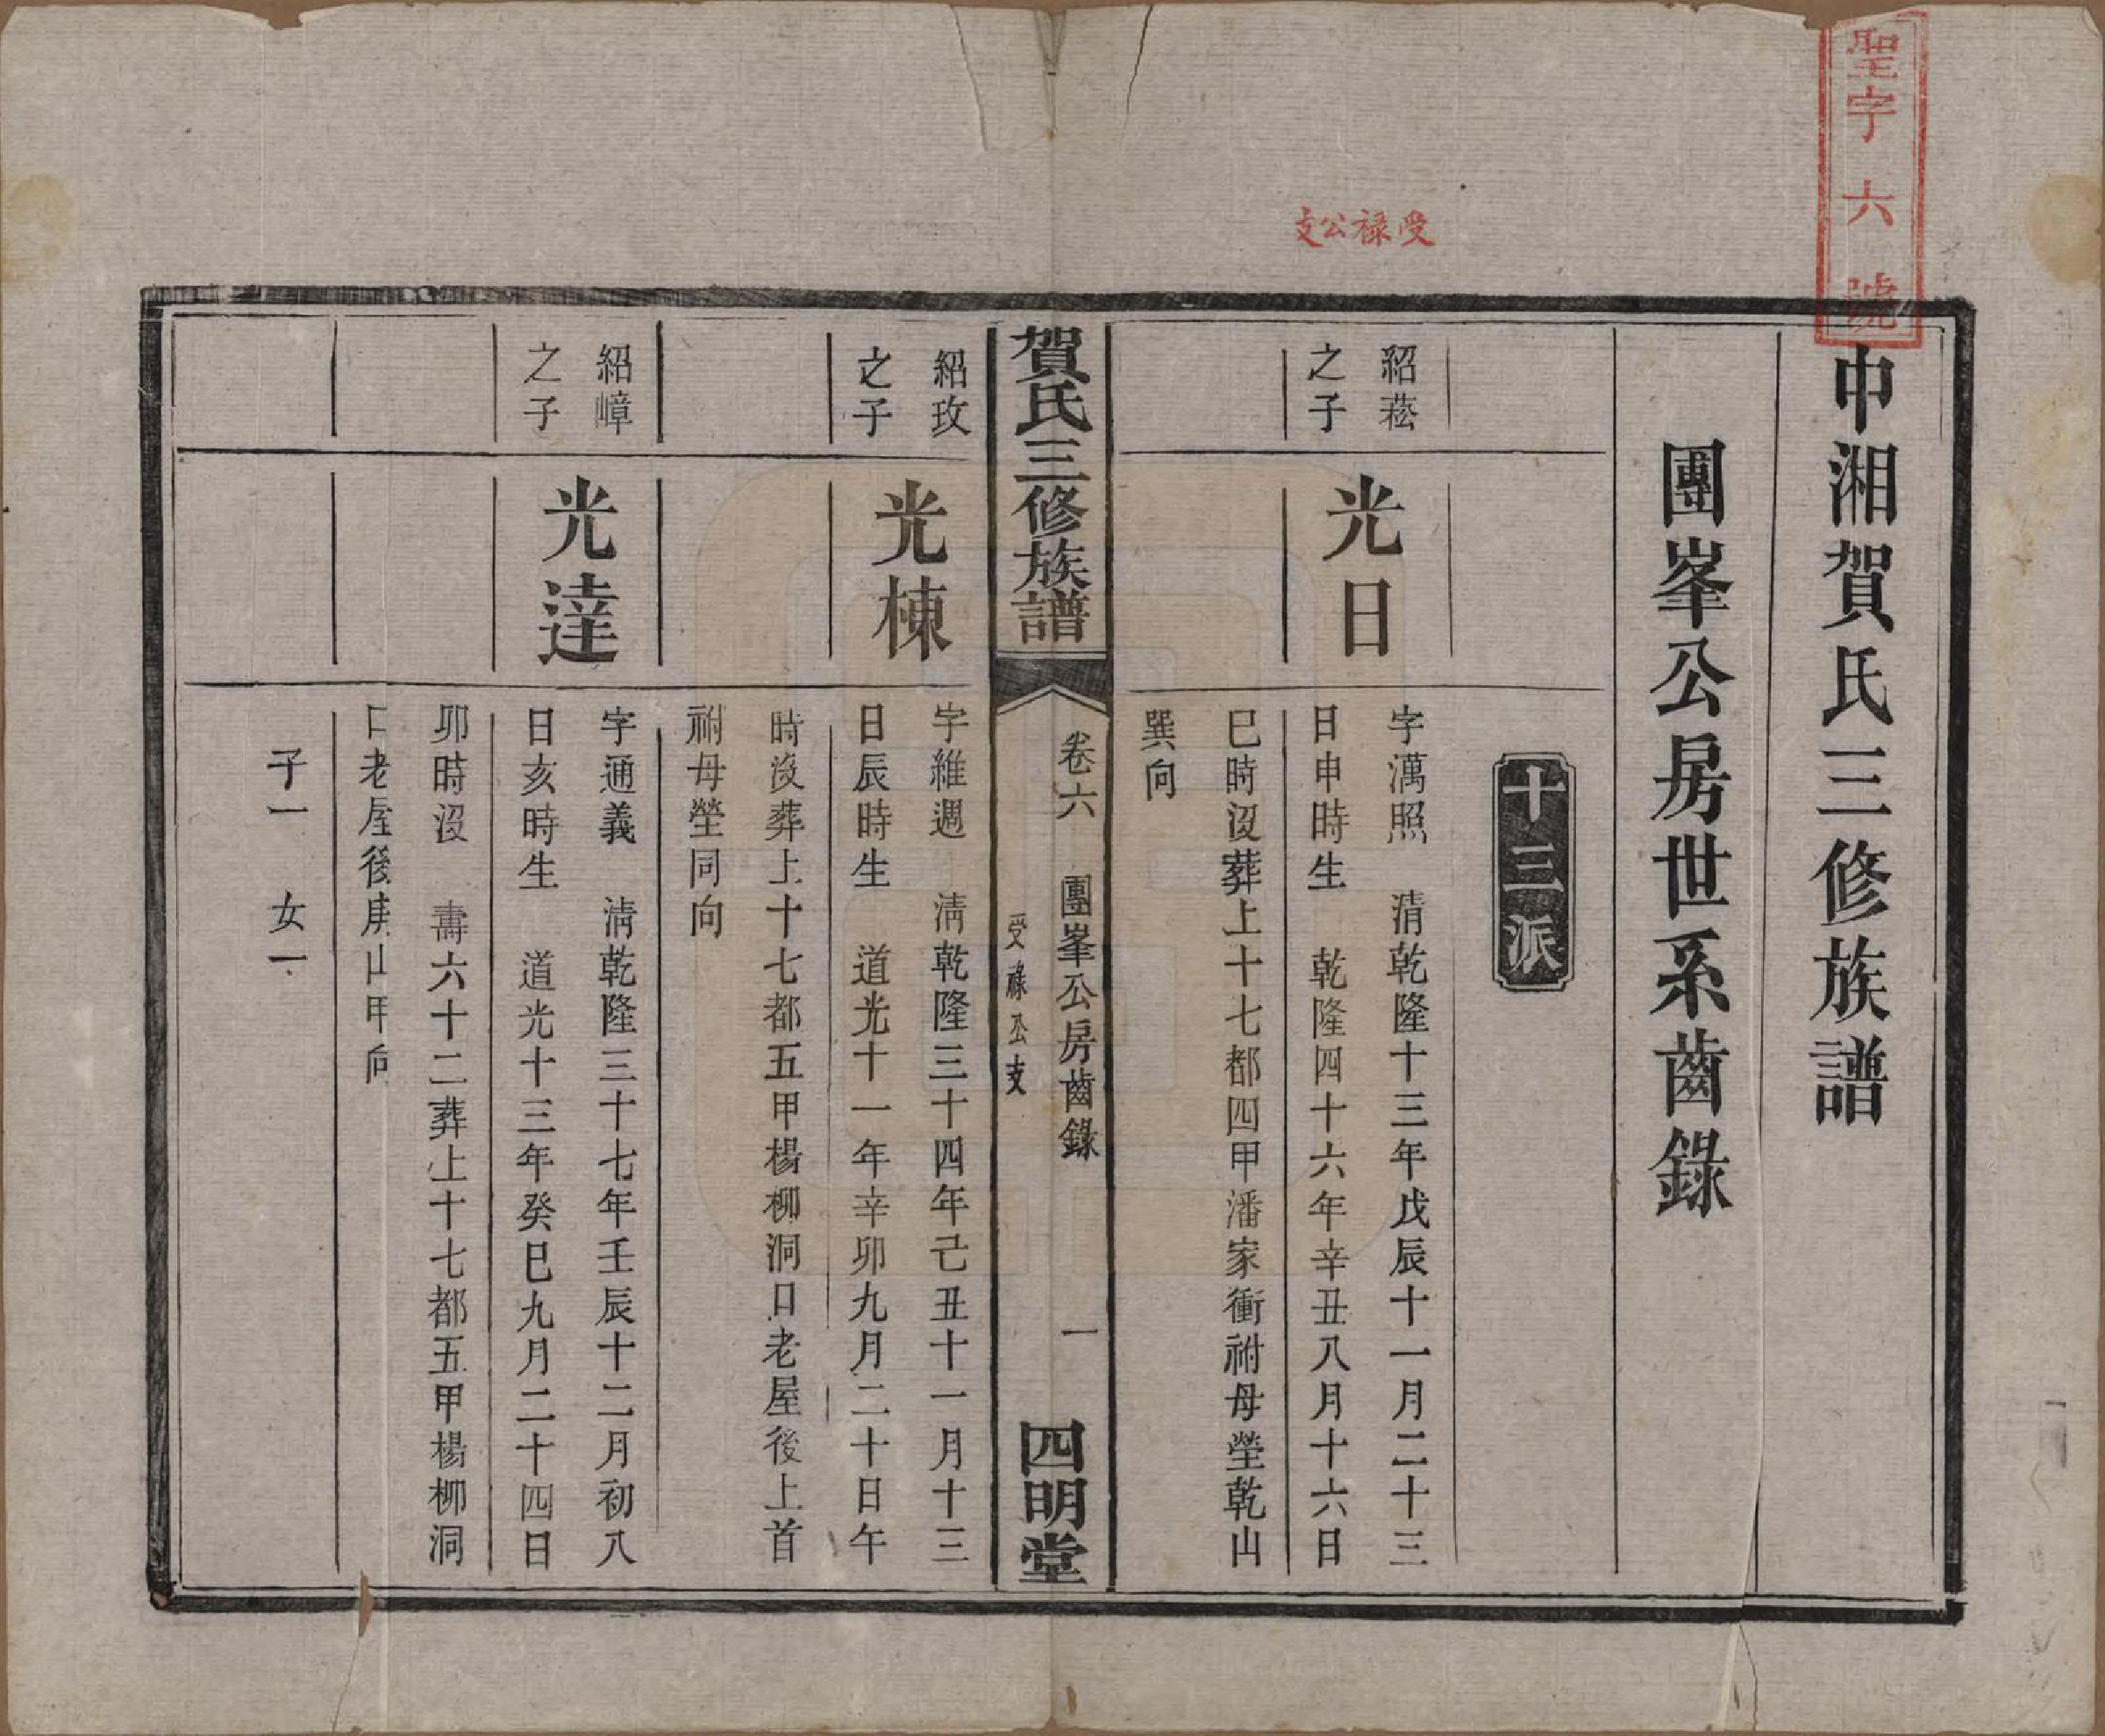 聖字六號
受祿公支
中湘賀氏三修族譜
團峯公房世系齒錄
十三派
紹菘
之子
光日
字萬照　清乾隆十三年戊辰十一月二十三
日申時生　乾隆四十六年辛丑八月十六日
巳時沒葬上十七都四甲潘家衝祔母塋乾山
巽向
賀氏三修族譜
卷六　團峯公房齒錄　一
受祿公支
四明堂
紹玫
之子
光棟
字維週　清乾隆三十四年己丑十一月十三
日辰時生　道光十一年辛卯九月二十日午
時沒葬上十七都五甲楊柳洞口老屋後上首
祔母塋同向
紹嶂
之子
光達
字通義　清乾隆三十七年壬辰十二月初八
日亥時生　道光十三年癸巳九月二十四日
卯時沒　壽六十二葬上十七都五甲楊柳洞
口老屋後庚山甲向
子一　女一